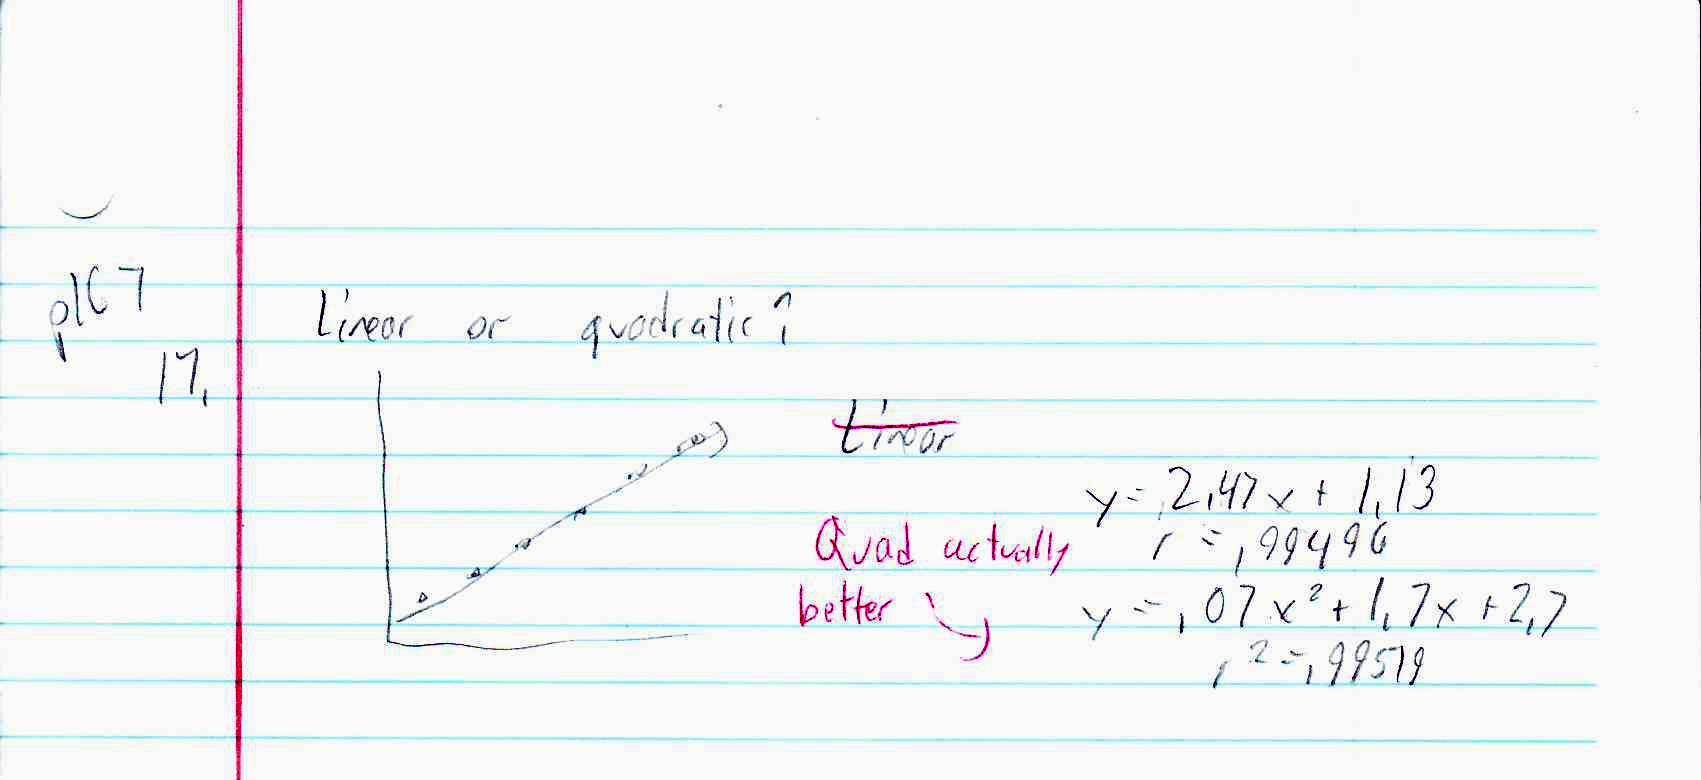 p167
17.
Linear or quadratic?
Linear
y = 2.47x + 1.13
r = .99496
Quad actually
better
y = .07x² + 1.7x + 2.7
r² = .99519